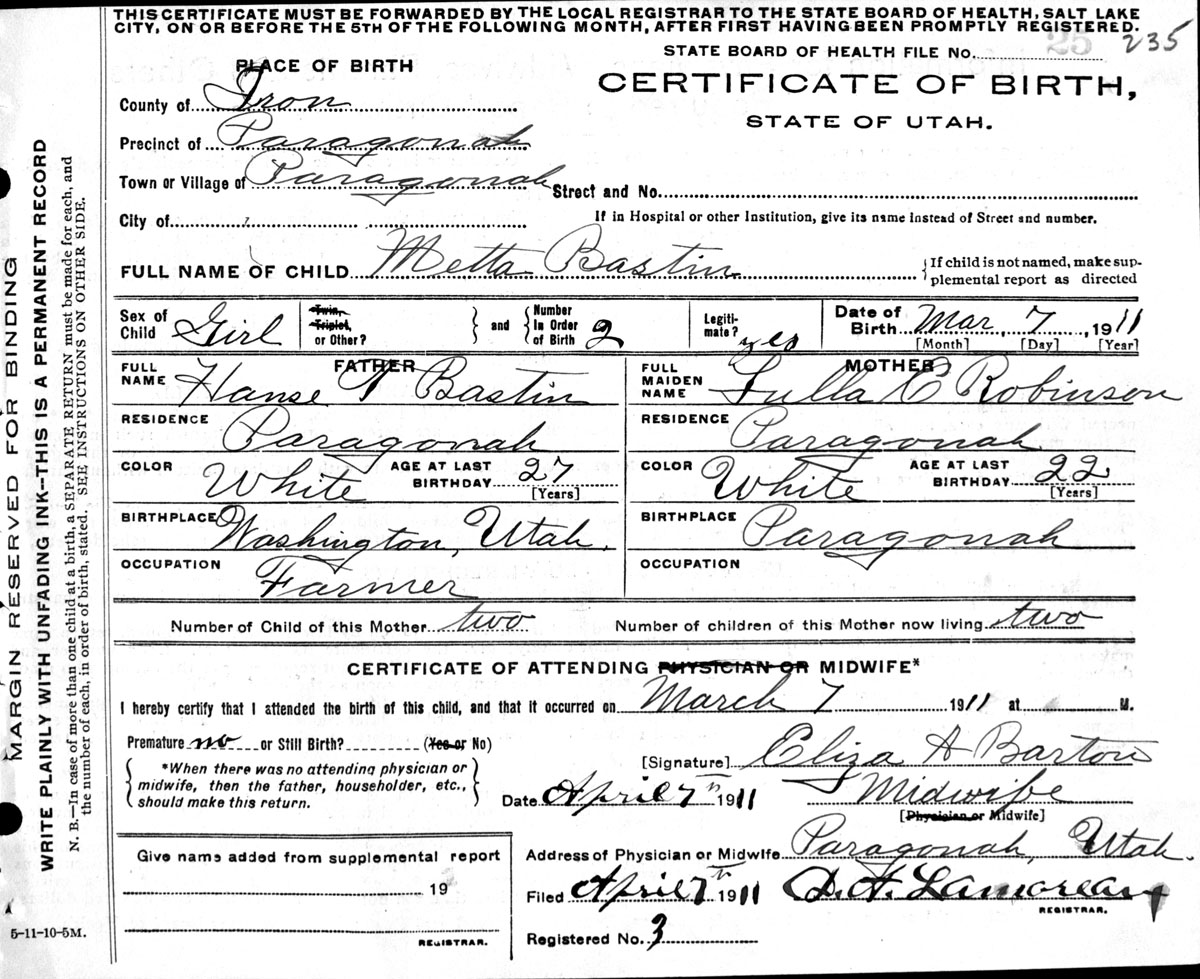 THIS CERTIFICATE MUST BE FORWARDED BY THE LOCAL REGISTRAR TO THE STATE BOARD OF HEALTH, SALT LAKE
CITY, ON OR BEFORE THE 5TH OF THE FOLLOWING MONTH, AFTER FIRST HAVING BEEN PROMPTLY REGISTERED.
25 235
STATE BOARD OF HEALTH FILE No.
PLACE OF BIRTH
CERTIFICATE OF BIRTH,
STATE OF UTAH.
County of Iron
Precinct of Paragonah
Town or Village of Paragonah Street and No.
City of If in Hospital or other Institution, give its name instead of Street and number.
FULL NAME OF CHILD Metta Bastin {If child is not named, make sup-
plemental report as directed
Sex of Child Girl Twin, Triplet, or Other? } and { Number In Order of Birth 2 Legiti-mate? yes Date of Birth Mar, 7, 1911
[Month] [Day] [Year]
FATHER MOTHER
FULL NAME Hanse Bastin FULL MAIDEN NAME Lulla C Robinson
RESIDENCE Paragonah RESIDENCE Paragonah
COLOR White AGE AT LAST BIRTHDAY 27 [Years] COLOR White AGE AT LAST BIRTHDAY 22 [Years]
BIRTHPLACE Washington, Utah. BIRTHPLACE Paragonah
OCCUPATION Farmer OCCUPATION
Number of Child of this Mother two Number of children of this Mother now living two
CERTIFICATE OF ATTENDING PHYSICIAN OR MIDWIFE*
I hereby certify that I attended the birth of this child, and that it occurred on March 7 1911 at M.
Premature no or Still Birth? (Yes or No)
{ *When there was no attending physician or
midwife, then the father, householder, etc.,
should make this return. }
[Signature] Eliza A Barton
Date April 7th 1911 Midwife
[Physician or Midwife]
Give name added from supplemental report
19
REGISTRAR.
Address of Physician or Midwife Paragonah, Utah.
Filed April 7th 1911 D. A. Lamoreaux
REGISTRAR.
Registered No. 3
5-11-10-5M.
MARGIN RESERVED FOR BINDING
WRITE PLAINLY WITH UNFADING INK—THIS IS A PERMANENT RECORD
N. B.—In case of more than one child at a birth, a SEPARATE RETURN must be made for each, and
the number of each, in order of birth, stated. SEE INSTRUCTIONS ON OTHER SIDE.